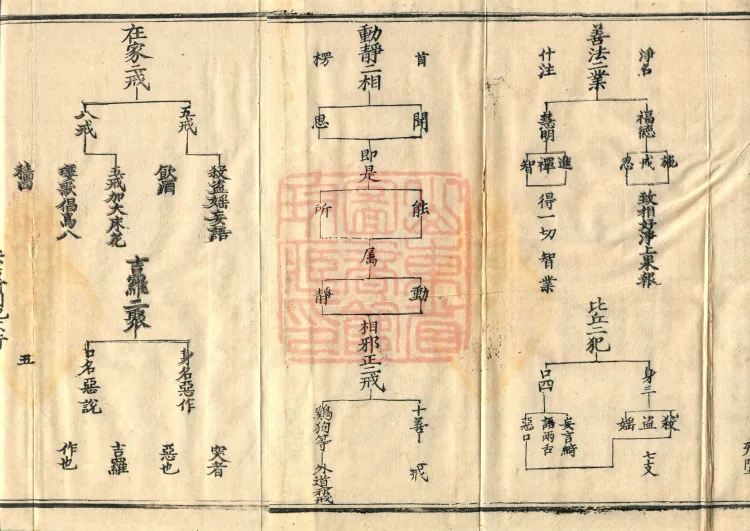 善法二業
淨名
什注
福德
慧明
施
戒
忍
進
禪
智
致相好淨土果報
得一切智業
比丘二犯
身三
口四
殺
盜
婬
七支
妄言綺
語兩舌
惡口
動靜二相
首
楞
聞
思
即是
能
所
属
動
靜
相邪正二戒
十善
戒
鷄狗等
外道戒
在家二戒
五戒
八戒
殺盜婬妄語
飲酒
五戒加大床花
瓔歌倡爲八
吉羅二聚
身名惡作
口名惡說
突者
惡也
吉羅
作也
五